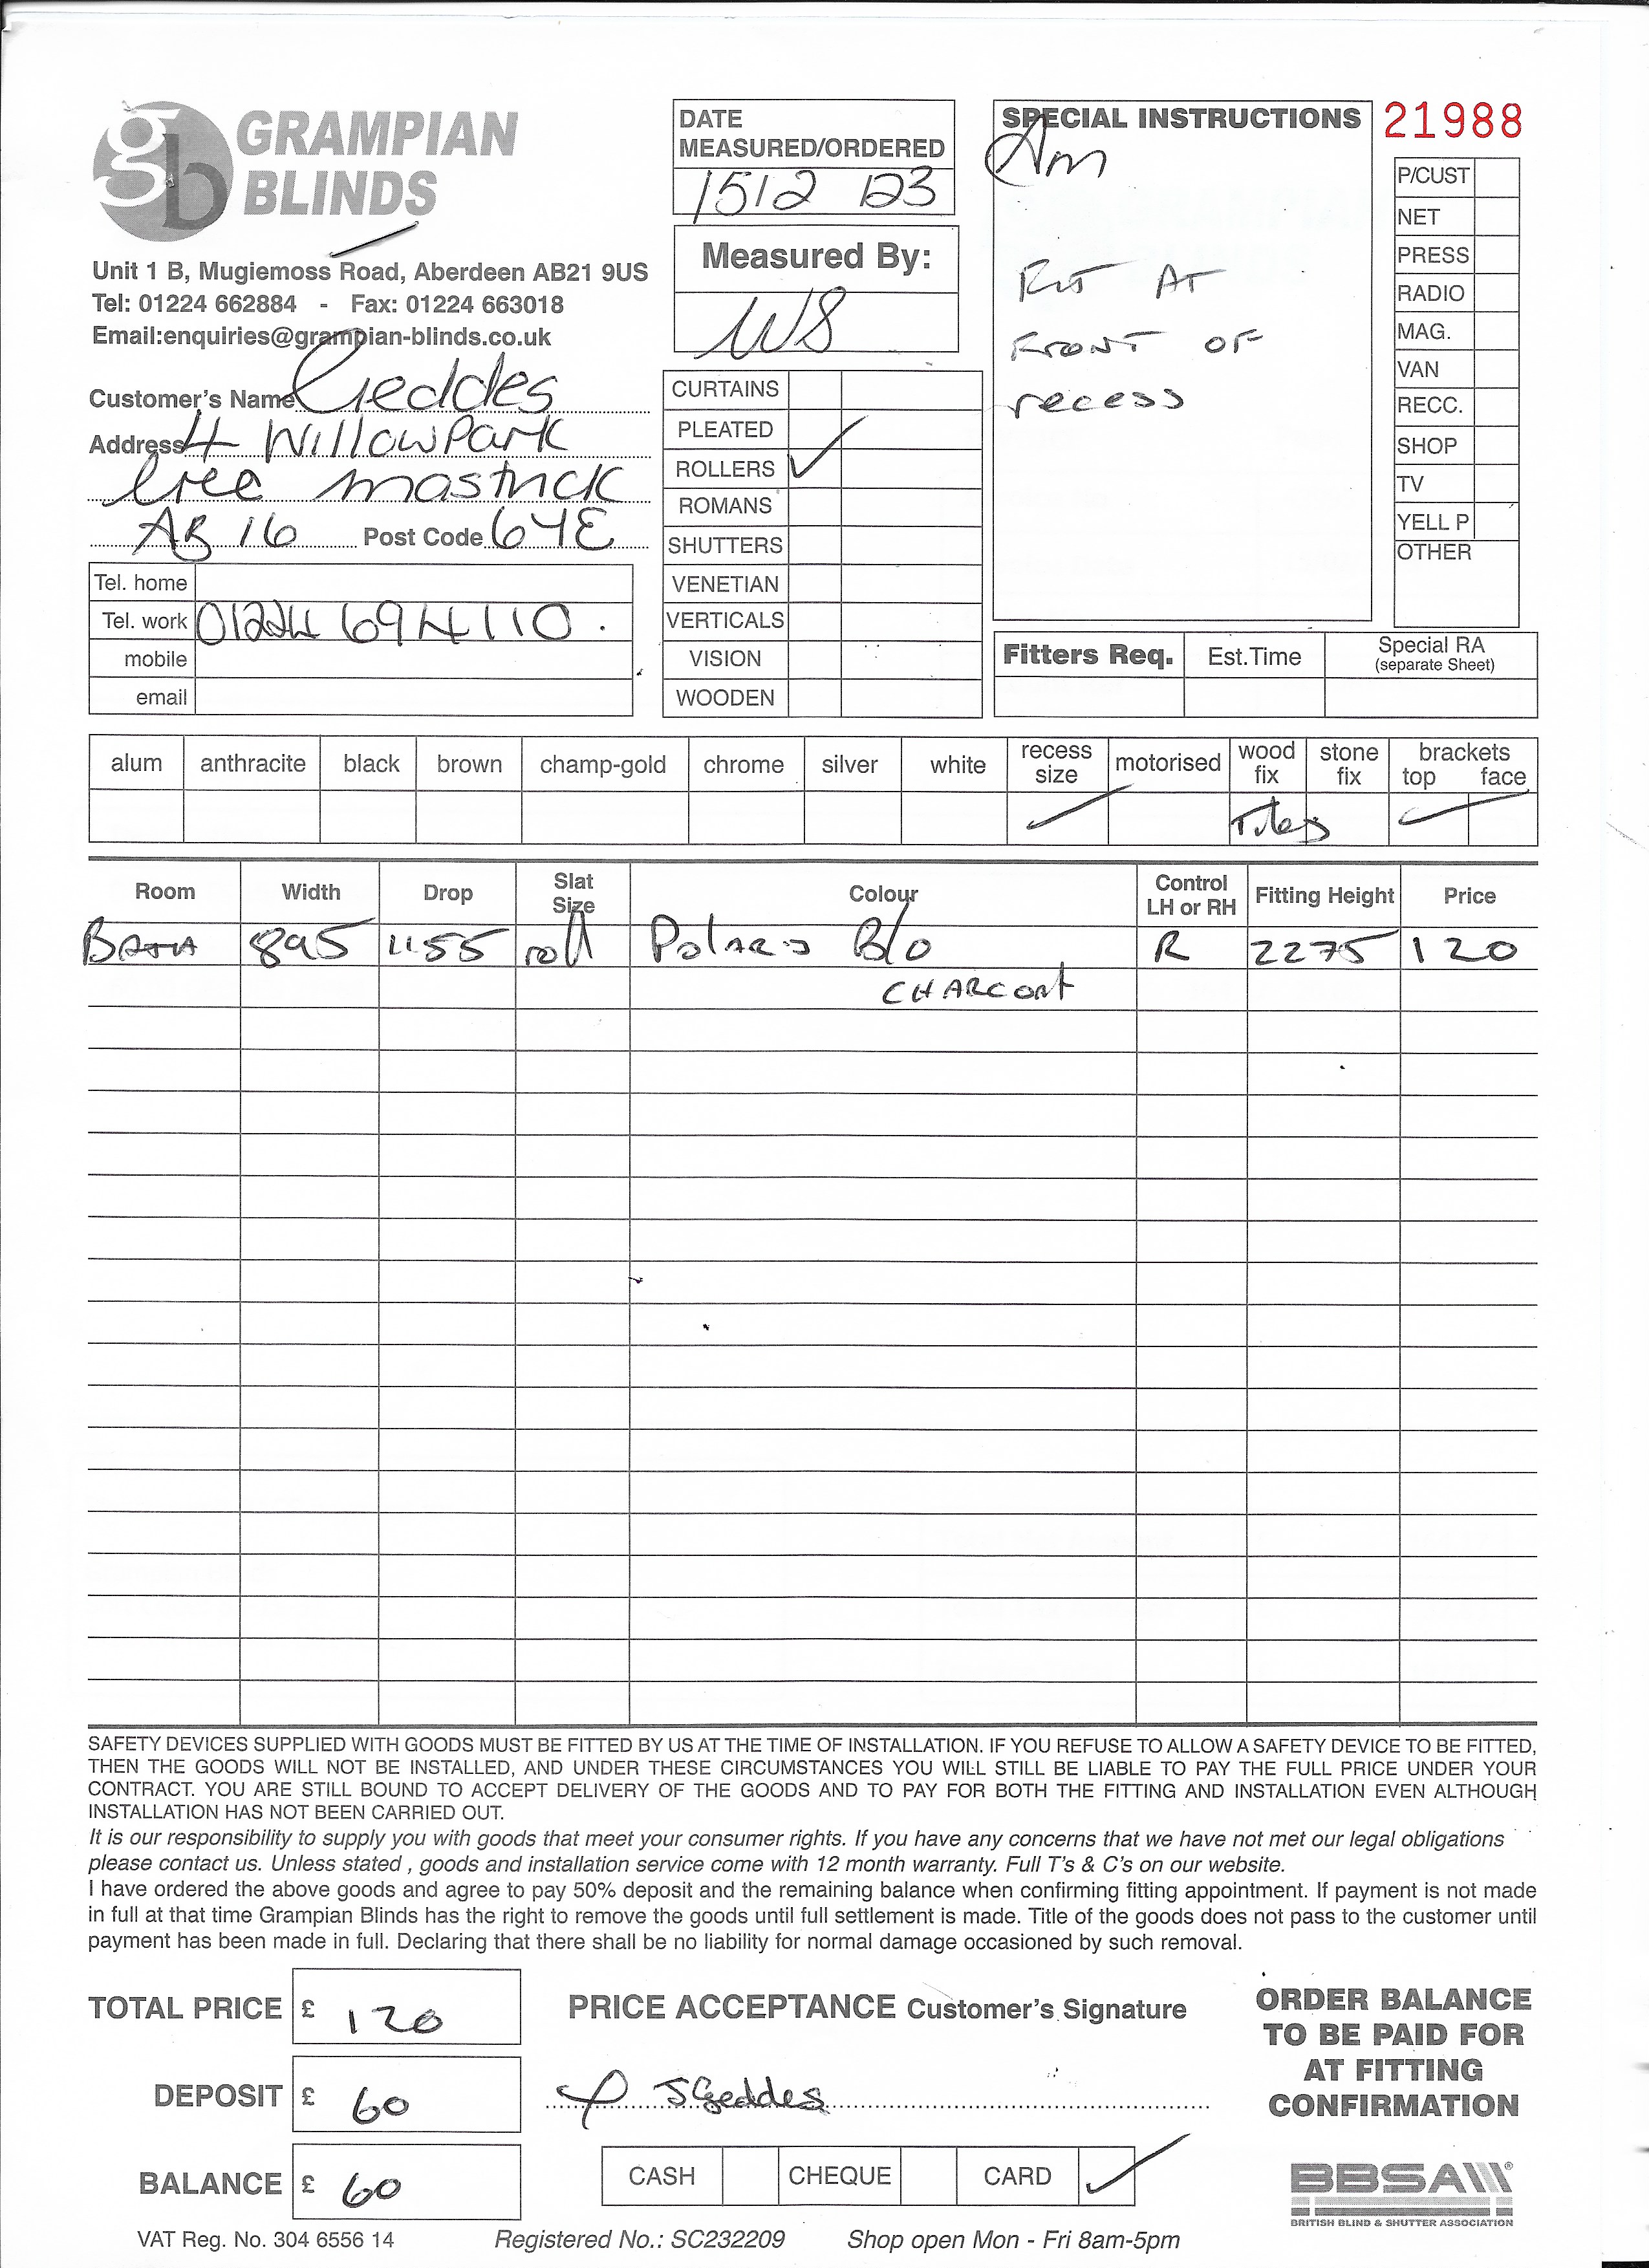 gb GRAMPIAN
BLINDS
Unit 1 B, Mugiemoss Road, Aberdeen AB21 9US
Tel: 01224 662884 - Fax: 01224 663018
Email:enquiries@grampian-blinds.co.uk
Customer's Name Geddes
Address 4 Willowpark
Cree Mastrick
AB 16 Post Code 6YE
Tel. home
Tel. work 01224 694110.
mobile
email
DATE
MEASURED/ORDERED
15 12 23
Measured By:
WS
CURTAINS
PLEATED
ROLLERS ✓
ROMANS
SHUTTERS
VENETIAN
VERTICALS
VISION
WOODEN
SPECIAL INSTRUCTIONS
Am
Fit AT
FRONT OF
recess
21988
P/CUST
NET
PRESS
RADIO
MAG.
VAN
RECC.
SHOP
TV
YELL P
OTHER
Fitters Req. Est.Time Special RA
(separate Sheet)
alum anthracite black brown champ-gold chrome silver white recess size motorised wood fix stone fix brackets top face
✓ Tiles ✓
Room Width Drop Slat Size Colour Control LH or RH Fitting Height Price
BATH 895 1155 roll Polaris B/o R 2275 120
CHARCOAL
SAFETY DEVICES SUPPLIED WITH GOODS MUST BE FITTED BY US AT THE TIME OF INSTALLATION. IF YOU REFUSE TO ALLOW A SAFETY DEVICE TO BE FITTED,
THEN THE GOODS WILL NOT BE INSTALLED, AND UNDER THESE CIRCUMSTANCES YOU WILL STILL BE LIABLE TO PAY THE FULL PRICE UNDER YOUR
CONTRACT. YOU ARE STILL BOUND TO ACCEPT DELIVERY OF THE GOODS AND TO PAY FOR BOTH THE FITTING AND INSTALLATION EVEN ALTHOUGH
INSTALLATION HAS NOT BEEN CARRIED OUT.
It is our responsibility to supply you with goods that meet your consumer rights. If you have any concerns that we have not met our legal obligations
please contact us. Unless stated , goods and installation service come with 12 month warranty. Full T's & C's on our website.
I have ordered the above goods and agree to pay 50% deposit and the remaining balance when confirming fitting appointment. If payment is not made
in full at that time Grampian Blinds has the right to remove the goods until full settlement is made. Title of the goods does not pass to the customer until
payment has been made in full. Declaring that there shall be no liability for normal damage occasioned by such removal.
TOTAL PRICE £ 120
DEPOSIT £ 60
BALANCE £ 60
PRICE ACCEPTANCE Customer's Signature
J Geddes
CASH CHEQUE CARD ✓
ORDER BALANCE
TO BE PAID FOR
AT FITTING
CONFIRMATION
BBSA
BRITISH BLIND & SHUTTER ASSOCIATION
VAT Reg. No. 304 6556 14 Registered No.: SC232209 Shop open Mon - Fri 8am-5pm